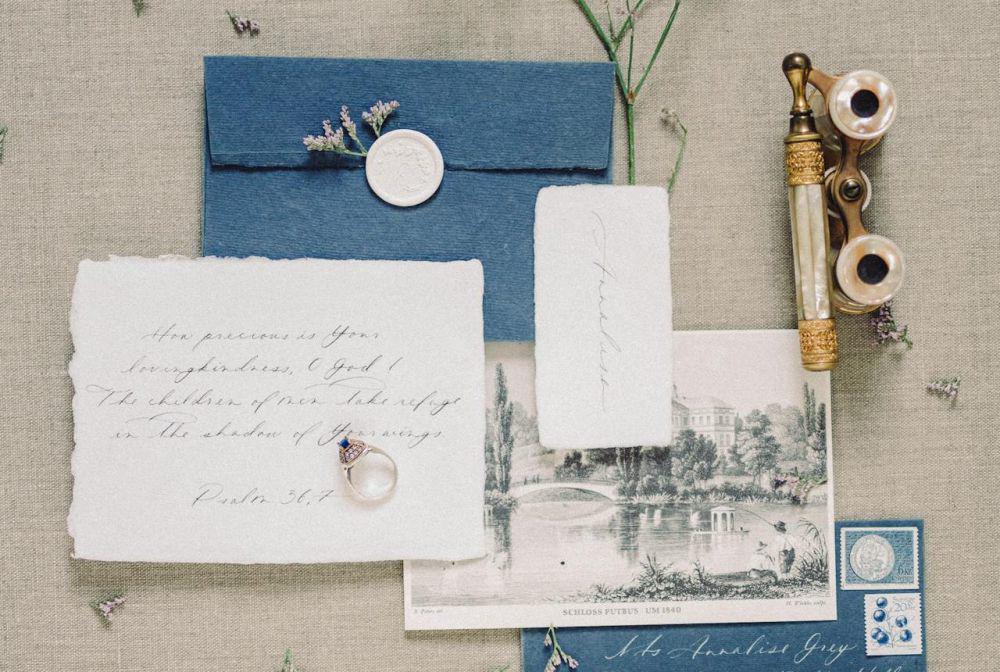 How precious is Your
lovingkindness, O God!
The children of men take refuge
in the shadow of Your wings.
Psalm 36,7
Annaliese
SCHLOSS PUTBUS UM 1840
Annalise Grey